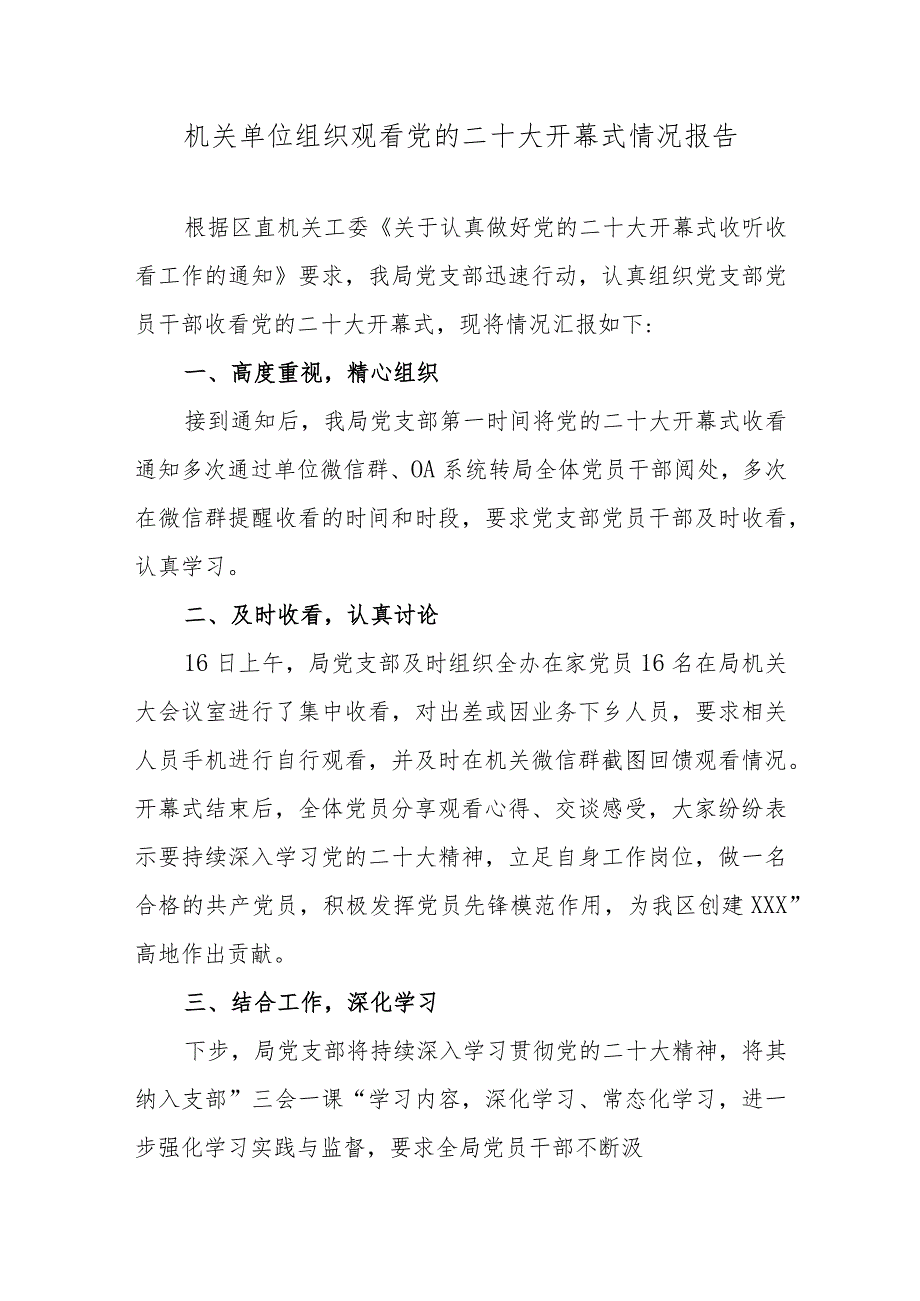 机关单位组织观看党的二十大开幕式情况报告
根据区直机关工委《关于认真做好党的二十大开幕式收听收
看工作的通知》要求，我局党支部迅速行动，认真组织党支部党
员干部收看党的二十大开幕式，现将情况汇报如下:
一、高度重视，精心组织
接到通知后，我局党支部第一时间将党的二十大开幕式收看
通知多次通过单位微信群、OA 系统转局全体党员干部阅处，多次
在微信群提醒收看的时间和时段，要求党支部党员干部及时收看，
认真学习。
二、及时收看，认真讨论
16 日上午，局党支部及时组织全办在家党员 16 名在局机关
大会议室进行了集中收看，对出差或因业务下乡人员，要求相关
人员手机进行自行观看，并及时在机关微信群截图回馈观看情况。
开幕式结束后，全体党员分享观看心得、交谈感受，大家纷纷表
示要持续深入学习党的二十大精神，立足自身工作岗位，做一名
合格的共产党员，积极发挥党员先锋模范作用，为我区创建 XXX”
高地作出贡献。
三、结合工作，深化学习
下步，局党支部将持续深入学习贯彻党的二十大精神，将其
纳入支部”三会一课“学习内容，深化学习、常态化学习，进一
步强化学习实践与监督，要求全局党员干部不断汲